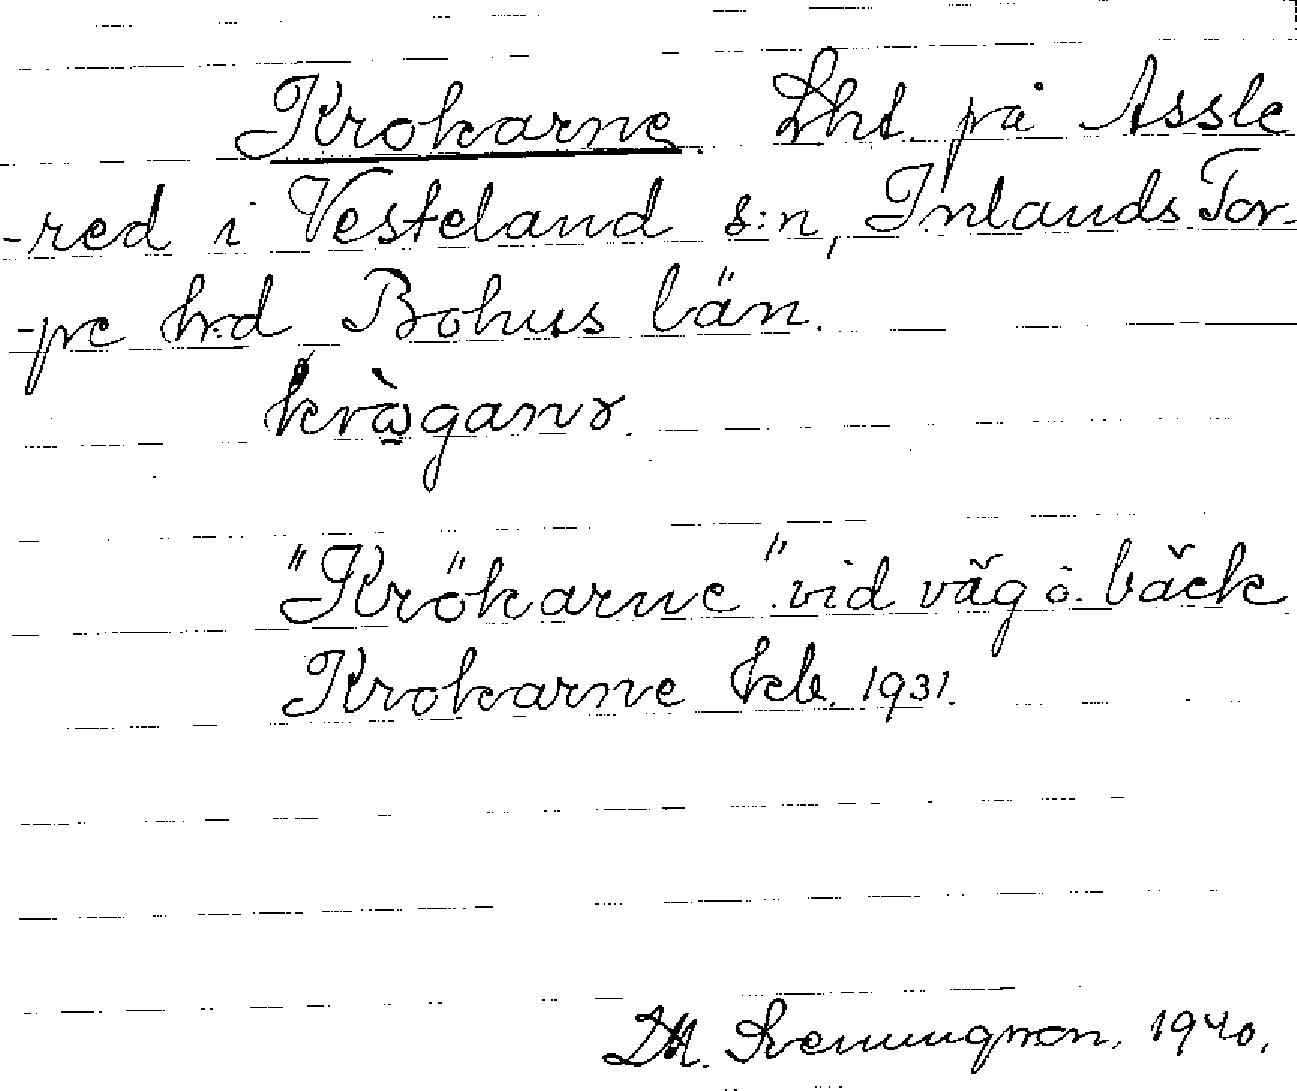 Krokarne. Lht på Assle
-red i Vesteland s:n, Inlands Tor-
-pe hrd Bohus län.
kràganr.
"Krökarne" vid väg o. bäck
Krokarne kb. 1931.
DM. Svenungsson, 1940.